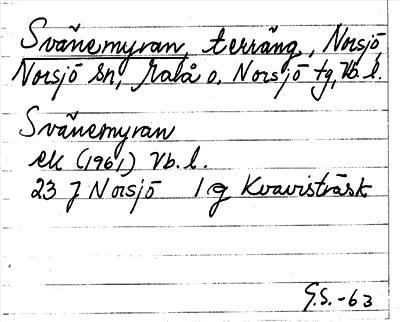 Svänemyran, terräng, Norsjö,
Norsjö sn, Malå o. Norsjö tg, Vb. l.
Svänemyran
ek (1961) Vb. l.
23 J Norsjö 1 g Kvavisträsk
G.S. -63